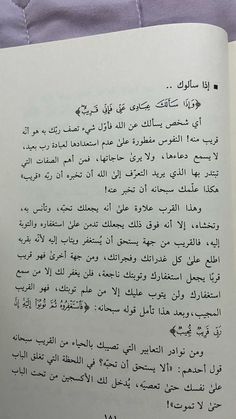 ▪ إذا سألوك ..
﴿وَإِذَا سَأَلَكَ عِبَادِي عَنِّي فَإِنِّي قَرِيبٌ﴾
أي شخص يسألك عن الله فأوّل شيء تصف ربّك به هو أنّه
قريب منه! النفوس مفطورة علىٰ عدم استعدادها لعبادة رب بعيد،
لا يسمع دعاءها، ولا يرىٰ حاجاتها، فمن أهم الصفات التي
تبتدر بها الذي يريد التعرّف إلىٰ الله أن تخبره أن ربّه «قريب»
هكذا علّمك سبحانه أن تخبر عنه!
وهذا القرب علاوة علىٰ أنه يجعلك تحبّه، وتأنس به،
وتخشاه، إلا أنه فوق ذلك يجعلك تدمن علىٰ استغفاره والتوبة
إليه، فالقريب من جهة يستحق أن يُستغفر ويتاب إليه لأنه بقربه
اطلع علىٰ كل غدراتك وفجراتك، ومن جهة أخرىٰ فهو قريب
قربًا يجعل استغفارك وتوبتك ناجعة، فلن يغفر لك إلا من سمع
استغفارك ولن يتوب عليك إلا من علم توبتك، فهو القريب
المجيب، وبعد هذا تأمل قوله سبحانه: ﴿فَاسْتَغْفِرُوهُ ثُمَّ تُوبُوا إِلَيْهِ إِنَّ
رَبِّي قَرِيبٌ مُجِيبٌ﴾
ومن نوادر التعابير التي تصيبك بالحياء من القريب سبحانه
قول أحدهم: «ألا يستحق أن تحبّه؟ في اللحظة التي تغلق الباب
علىٰ نفسك حتىٰ تعصيه، يُدخل لك الأكسجين من تحت الباب
حتىٰ لا تموت»!